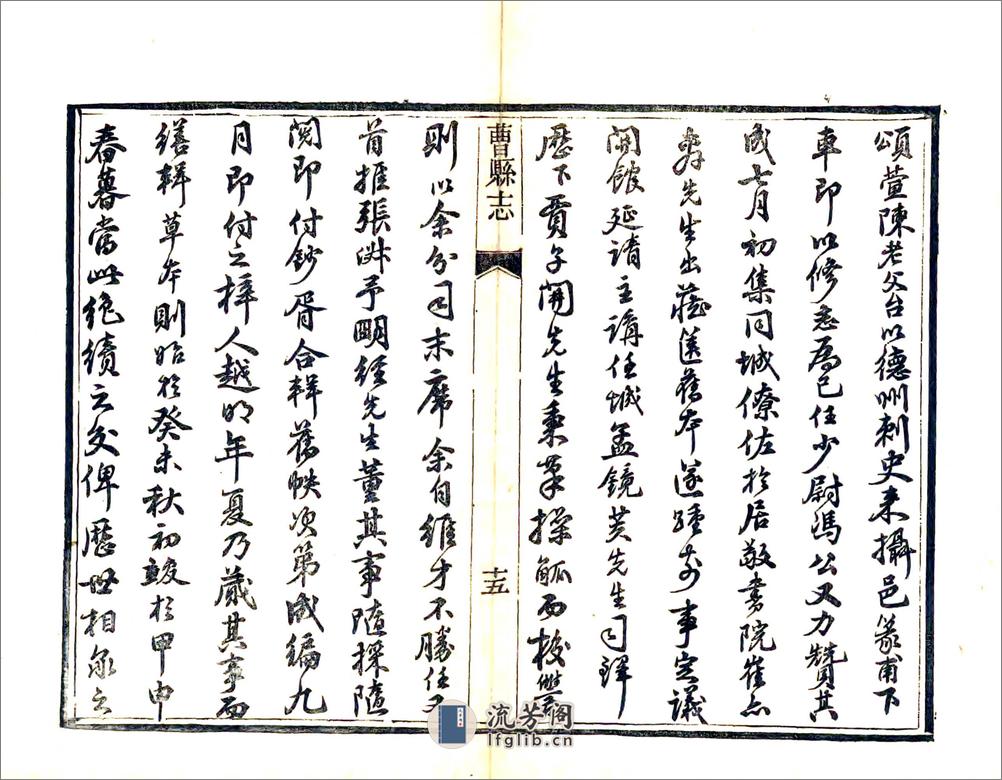 頌萱陳老父台以德州刺史来攝邑篆甫下
車即以修志為己任少尉馮公又力贊其
成七月初集同城僚佐於居敬書院崔
先生出藏篋舊本遂踵前事定議
開館延請主講任城孟鏡芙先生司鐸
歷下賈子開先生秉筆操觚而校讐
則以余分司末席余自維才不勝任又
首推張
予明經先生董其事隨採隨
閱即付鈔胥合輯舊帙次第成編九
月即付之梓人越明年夏乃蕆其事而
繕輯草本則始於癸未秋初竣於甲申
春暮當此絶續之交俾歷世相承之
曹縣志
十五
流芳阁
lfglib.cn